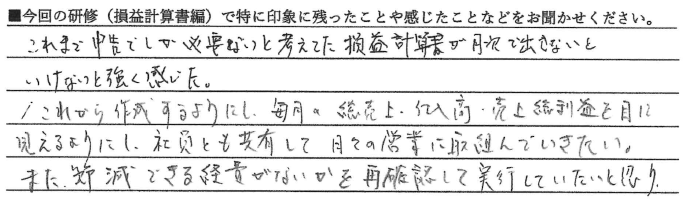 ■今回の研修（損益計算書編）で特に印象に残ったことや感じたことなどをお聞かせください。
これまで申告でしか必要ないと考えてた損益計算書が月次で出さないと
いけないと強く感じた。
これから作成するようにし、毎月の総売上・仕入高・売上総利益を目に
見えるようにし、社員とも共有して日々の営業に取組んでいきたい。
また、節減できる経費がないかを再確認して実行していたいと思う。